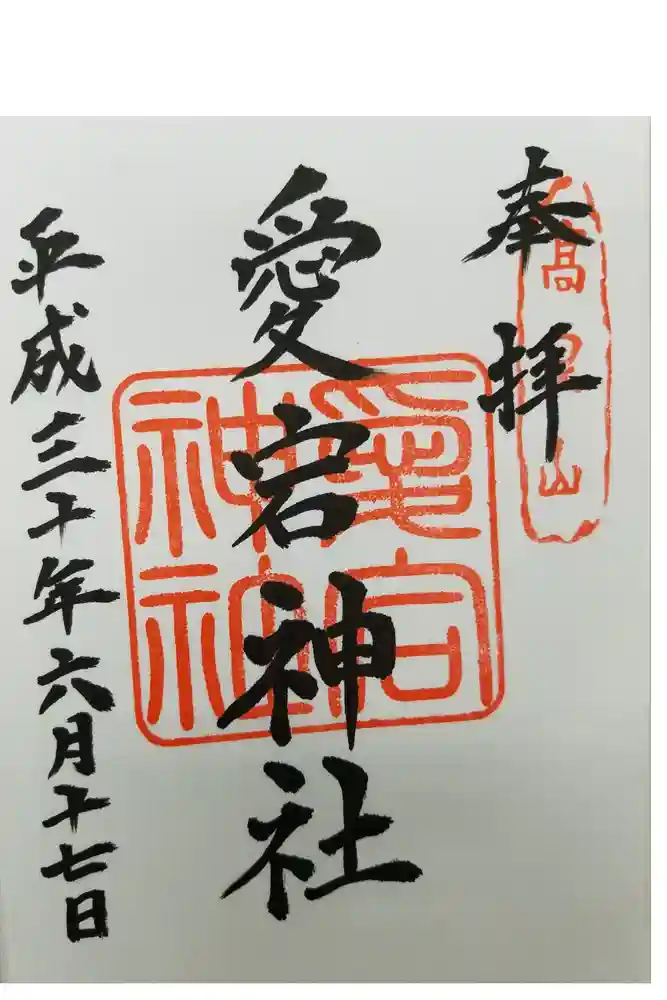 奉拝
高星山
愛宕神社
愛宕神社
平成三十年六月十七日